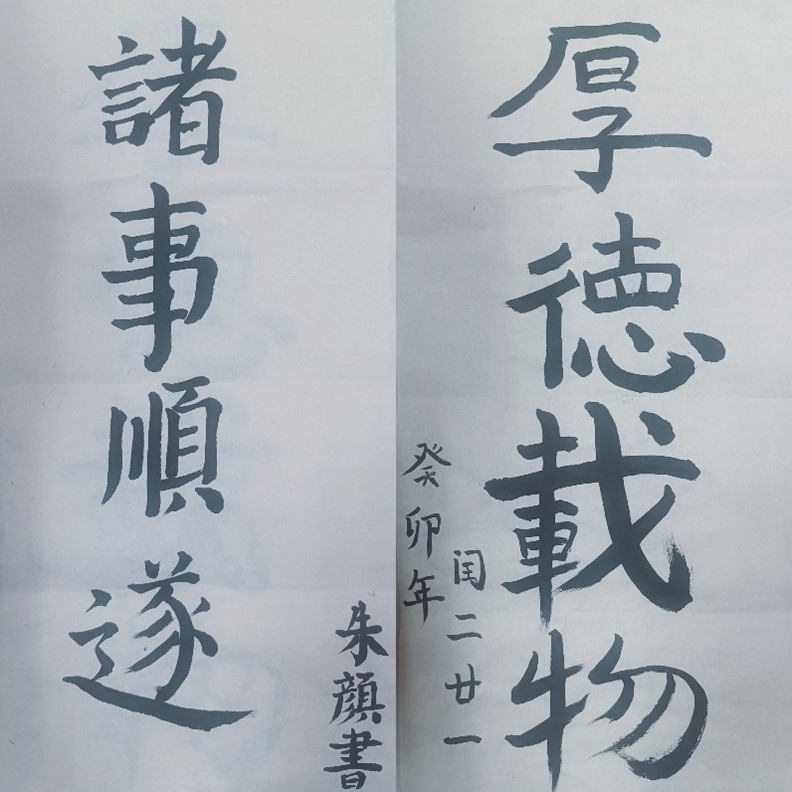 厚德載物
癸卯年
闰二廿一
諸事順遂
朱顏書